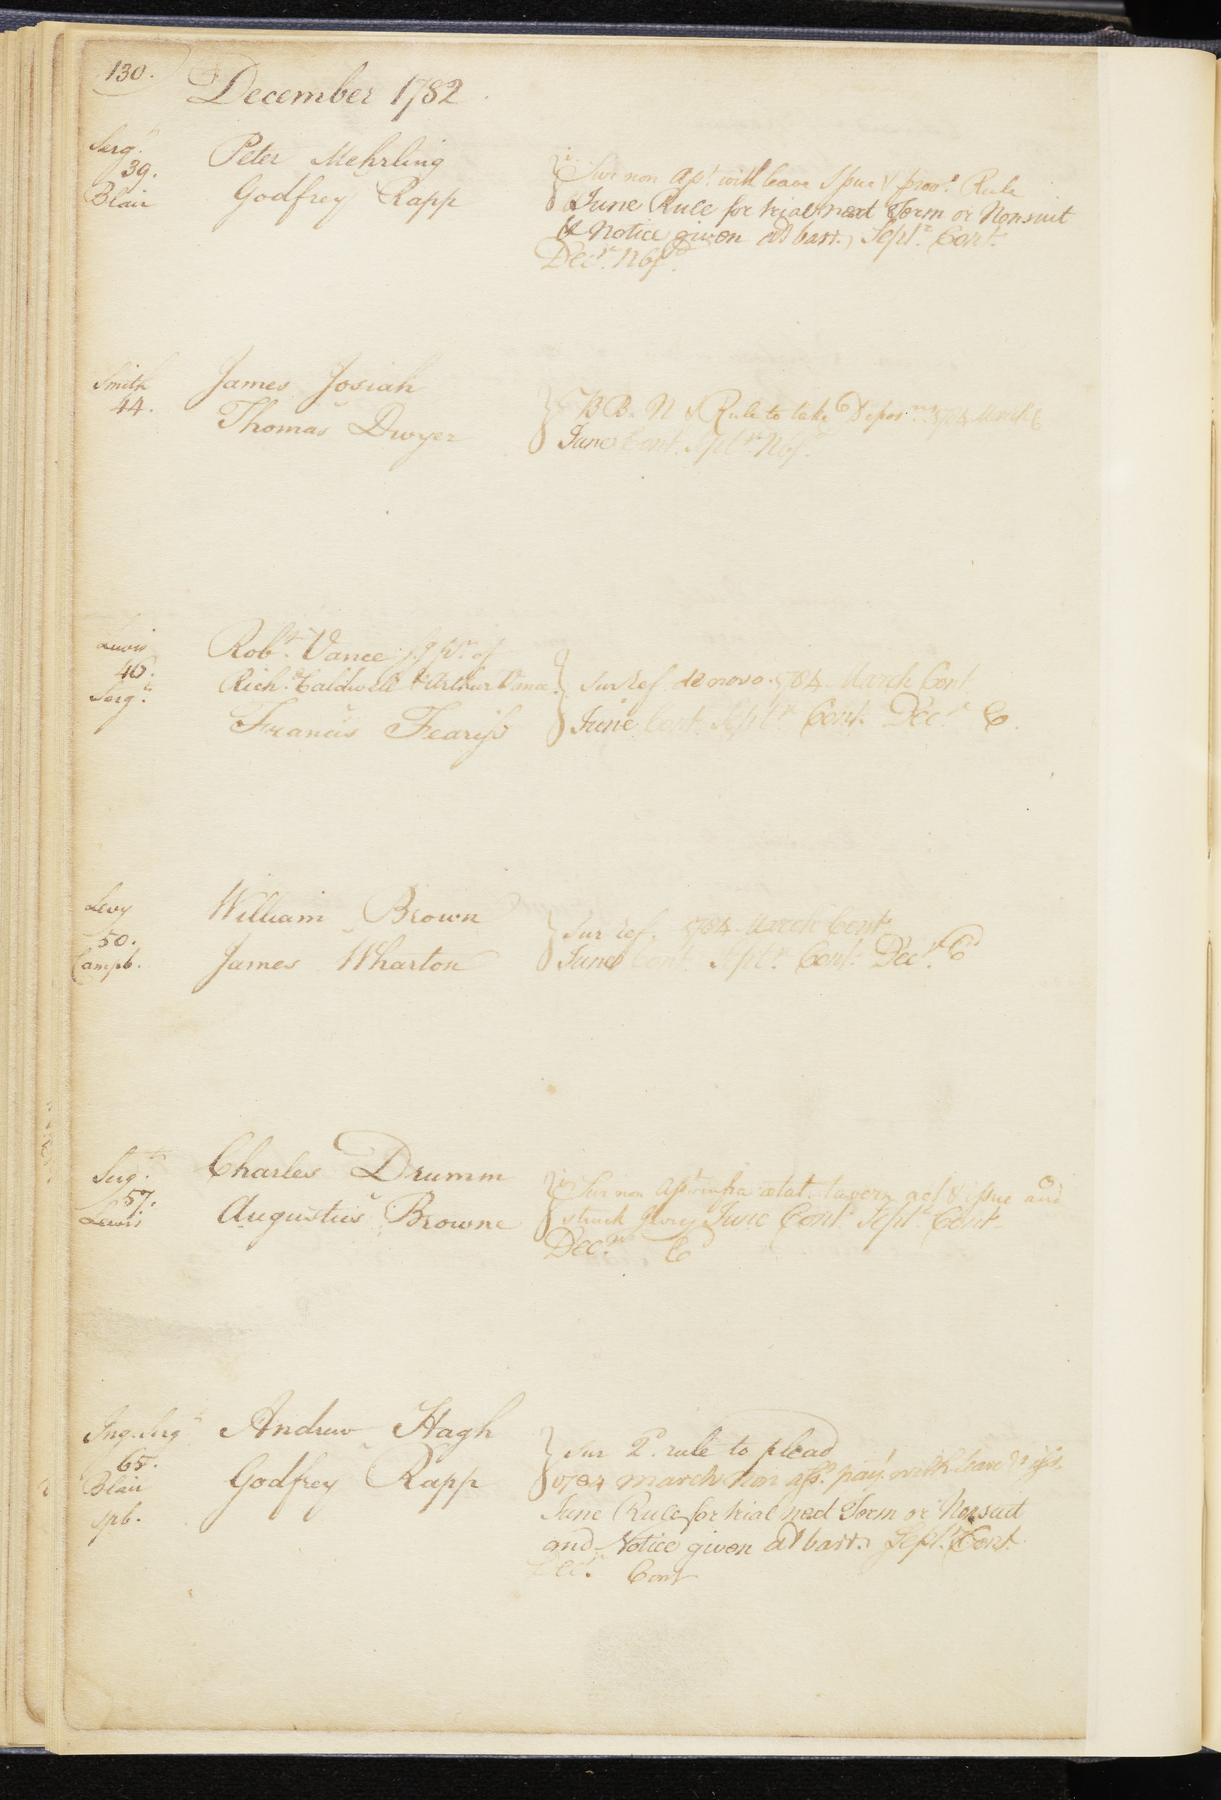 130.
December 1782
Serg.t
39.
Blair
Peter Mehrling
Godfrey Rapp
Sur non Aps.t with leave Issue & prov.o Rule
June Rule for trial next Term or Nonsuit
& Notice given at barr. Sept.r Cont.
Dec.r
Smith
44.
James Josiah
Thomas Dwyer
B. B. N & Rule to take Depos.ns 1784 March C
June Cont. Sept.r
Lewis
46.
Serg.t
Rob.t Vance
Rich.d Caldwell & Arthur Vance
Francis Feariss
Sur ref. de novo. 1784 March Cont.
June Cont. Sept.r Cont. Dec.r C.
Levy
50.
Campb.
William Brown
James Wharton
Sur ref. 1784 March Cont.
June Cont. Sept.r Cont. Dec.r C
Serg.t
57.
Lewis
Charles Drumm
Augustus Browne
Sur non Aps.t infra ætat. tavern act & issue and
struck Jury June Cont. Sept.r Cont.
Dec.r C
Ing. Serg.t
65.
Blair
spb.
Andrew Hagh
Godfrey Rapp
Sur 2.d rule to plead
1784 March non ass.p pay.t with leave & iss.
June Rule for trial next Term or Nonsuit
and Notice given at barr. Sept.r Cont.
Dec.r Cont